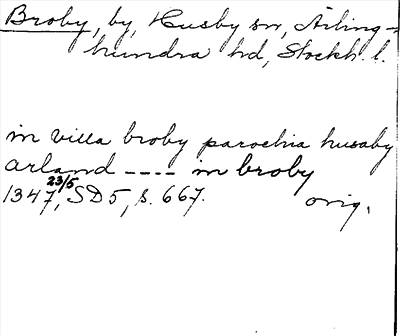 Broby, by, Husby sn, Ärling-
hundra hd, Stockh. l.
in villa broby parochia husaby
arland ---- in broby
1347 23/5, SD 5, s. 667. orig.